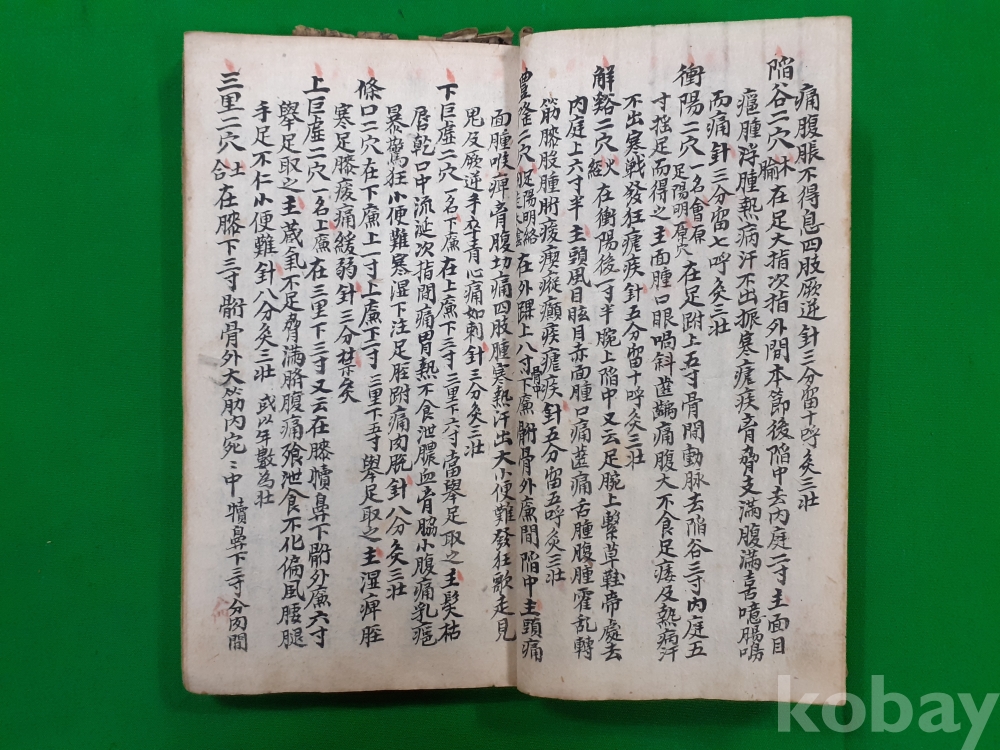 痛腹脹不得息四肢厥逆針三分留十呼灸三壯
陷谷二穴 木 腧 在足大指次指外間本節後陷中去內庭二寸主面目
癰腫浮腫熱病汗不出振寒瘧疾胷脅支滿腹滿喜噫腸鳴
而痛針三分留七呼灸三壯
衝陽二穴 一名會原 足陽明原穴 在足跗上五寸骨間動脉去陷谷三寸內庭五
寸搖足而得之主面腫口眼喎斜齒齲痛腹大不食足痿及熱病汗
不出寒戰發狂瘧疾針五分留十呼灸三壯
解谿二穴 火 經 在衝陽後一寸半腕上陷中又云足腕上繫草鞋帶處去
內庭上六寸半主頭風目眩目赤面腫口痛齒痛舌腫腹腫霍亂轉
筋膝股腫胻痠瘈瘲癲疾瘧疾針五分留五呼灸三壯
豊隆二穴 足陽明絡 在外踝上八寸下廉胻骨外廉間陷中主頭痛
面腫喉痺胷腹切痛四肢腫寒熱汗出大小便難發狂歌走見
鬼反厥逆手卒青心痛如刺針三分灸三壯
下巨虛二穴 一名下廉 在上廉下三寸三里下六寸當舉足取之主髮枯
唇乾口中流涎次指間痛胃熱不食泄膿血胷脇小腹痛乳癰
暴驚狂小便難寒湿下注足脛跗痛肉脫針八分灸三壯
條口二穴在下廉上一寸上廉下二寸三里下五寸舉足取之主湿痺脛
寒足膝痠痛緩弱針三分禁灸
上巨虛二穴 一名上廉 在三里下三寸又云在膝犢鼻下胻外廉六寸
舉足取之主蔵氣不足脅滿臍腹痛飧泄食不化偏風腰腿
手足不仁小便難針八分灸三壯 或以年數為壯
三里二穴 土 合 在膝下三寸胻骨外大筋內宛〻中 犢鼻下三寸分肉間
kobay